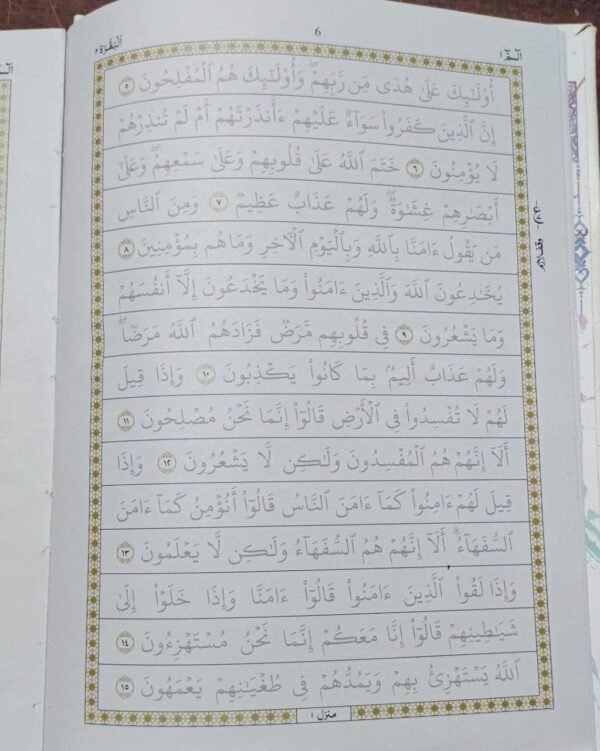 الٓمّٓ ١
6
البقرة ٢
أُوْلَٰٓئِكَ عَلَىٰ هُدٗى مِّن رَّبِّهِمۡۖ وَأُوْلَٰٓئِكَ هُمُ ٱلۡمُفۡلِحُونَ ٥
إِنَّ ٱلَّذِينَ كَفَرُواْ سَوَآءٌ عَلَيۡهِمۡ ءَأَنذَرۡتَهُمۡ أَمۡ لَمۡ تُنذِرۡهُمۡ
لَا يُؤۡمِنُونَ ٦ خَتَمَ ٱللَّهُ عَلَىٰ قُلُوبِهِمۡ وَعَلَىٰ سَمۡعِهِمۡۖ وَعَلَىٰٓ
أَبۡصَٰرِهِمۡ غِشَٰوَةٞۖ وَلَهُمۡ عَذَابٌ عَظِيمٞ ٧ وَمِنَ ٱلنَّاسِ
مَن يَقُولُ ءَامَنَّا بِٱللَّهِ وَبِٱلۡيَوۡمِ ٱلۡأٓخِرِ وَمَا هُم بِمُؤۡمِنِينَ ٨
يُخَٰدِعُونَ ٱللَّهَ وَٱلَّذِينَ ءَامَنُواْ وَمَا يَخۡدَعُونَ إِلَّآ أَنفُسَهُمۡ
وَمَا يَشۡعُرُونَ ٩ فِي قُلُوبِهِم مَّرَضٞ فَزَادَهُمُ ٱللَّهُ مَرَضٗاۖ
وَلَهُمۡ عَذَابٌ أَلِيمُۢ بِمَا كَانُواْ يَكۡذِبُونَ ١٠ وَإِذَا قِيلَ
لَهُمۡ لَا تُفۡسِدُواْ فِي ٱلۡأَرۡضِ قَالُوٓاْ إِنَّمَا نَحۡنُ مُصۡلِحُونَ ١١
أَلَآ إِنَّهُمۡ هُمُ ٱلۡمُفۡسِدُونَ وَلَٰكِن لَّا يَشۡعُرُونَ ١٢ وَإِذَا
قِيلَ لَهُمۡ ءَامِنُواْ كَمَآ ءَامَنَ ٱلنَّاسُ قَالُوٓاْ أَنُؤۡمِنُ كَمَآ ءَامَنَ
ٱلسُّفَهَآءُۗ أَلَآ إِنَّهُمۡ هُمُ ٱلسُّفَهَآءُ وَلَٰكِن لَّا يَعۡلَمُونَ ١٣
وَإِذَا لَقُواْ ٱلَّذِينَ ءَامَنُواْ قَالُوٓاْ ءَامَنَّا وَإِذَا خَلَوۡاْ إِلَىٰ
شَيَٰطِينِهِمۡ قَالُوٓاْ إِنَّا مَعَكُمۡ إِنَّمَا نَحۡنُ مُسۡتَهۡزِءُونَ ١٤
ٱللَّهُ يَسۡتَهۡزِئُ بِهِمۡ وَيَمُدُّهُمۡ فِي طُغۡيَٰنِهِمۡ يَعۡمَهُونَ ١٥
منزل ١